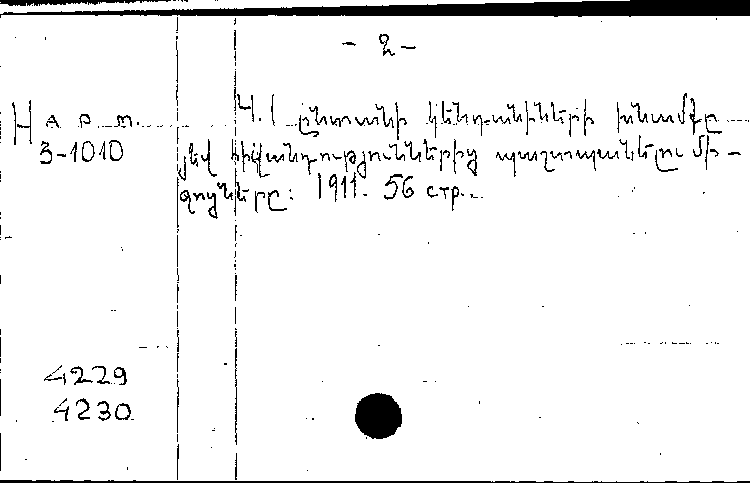 - 2 -
Н арт.
3-1010
Կ.1 ընտանի կենդանիների խնամքը
յեվ հիվանդություններից պաշտպանելու մի-
ջոցները: 1911. 56 стр..
4229
4230